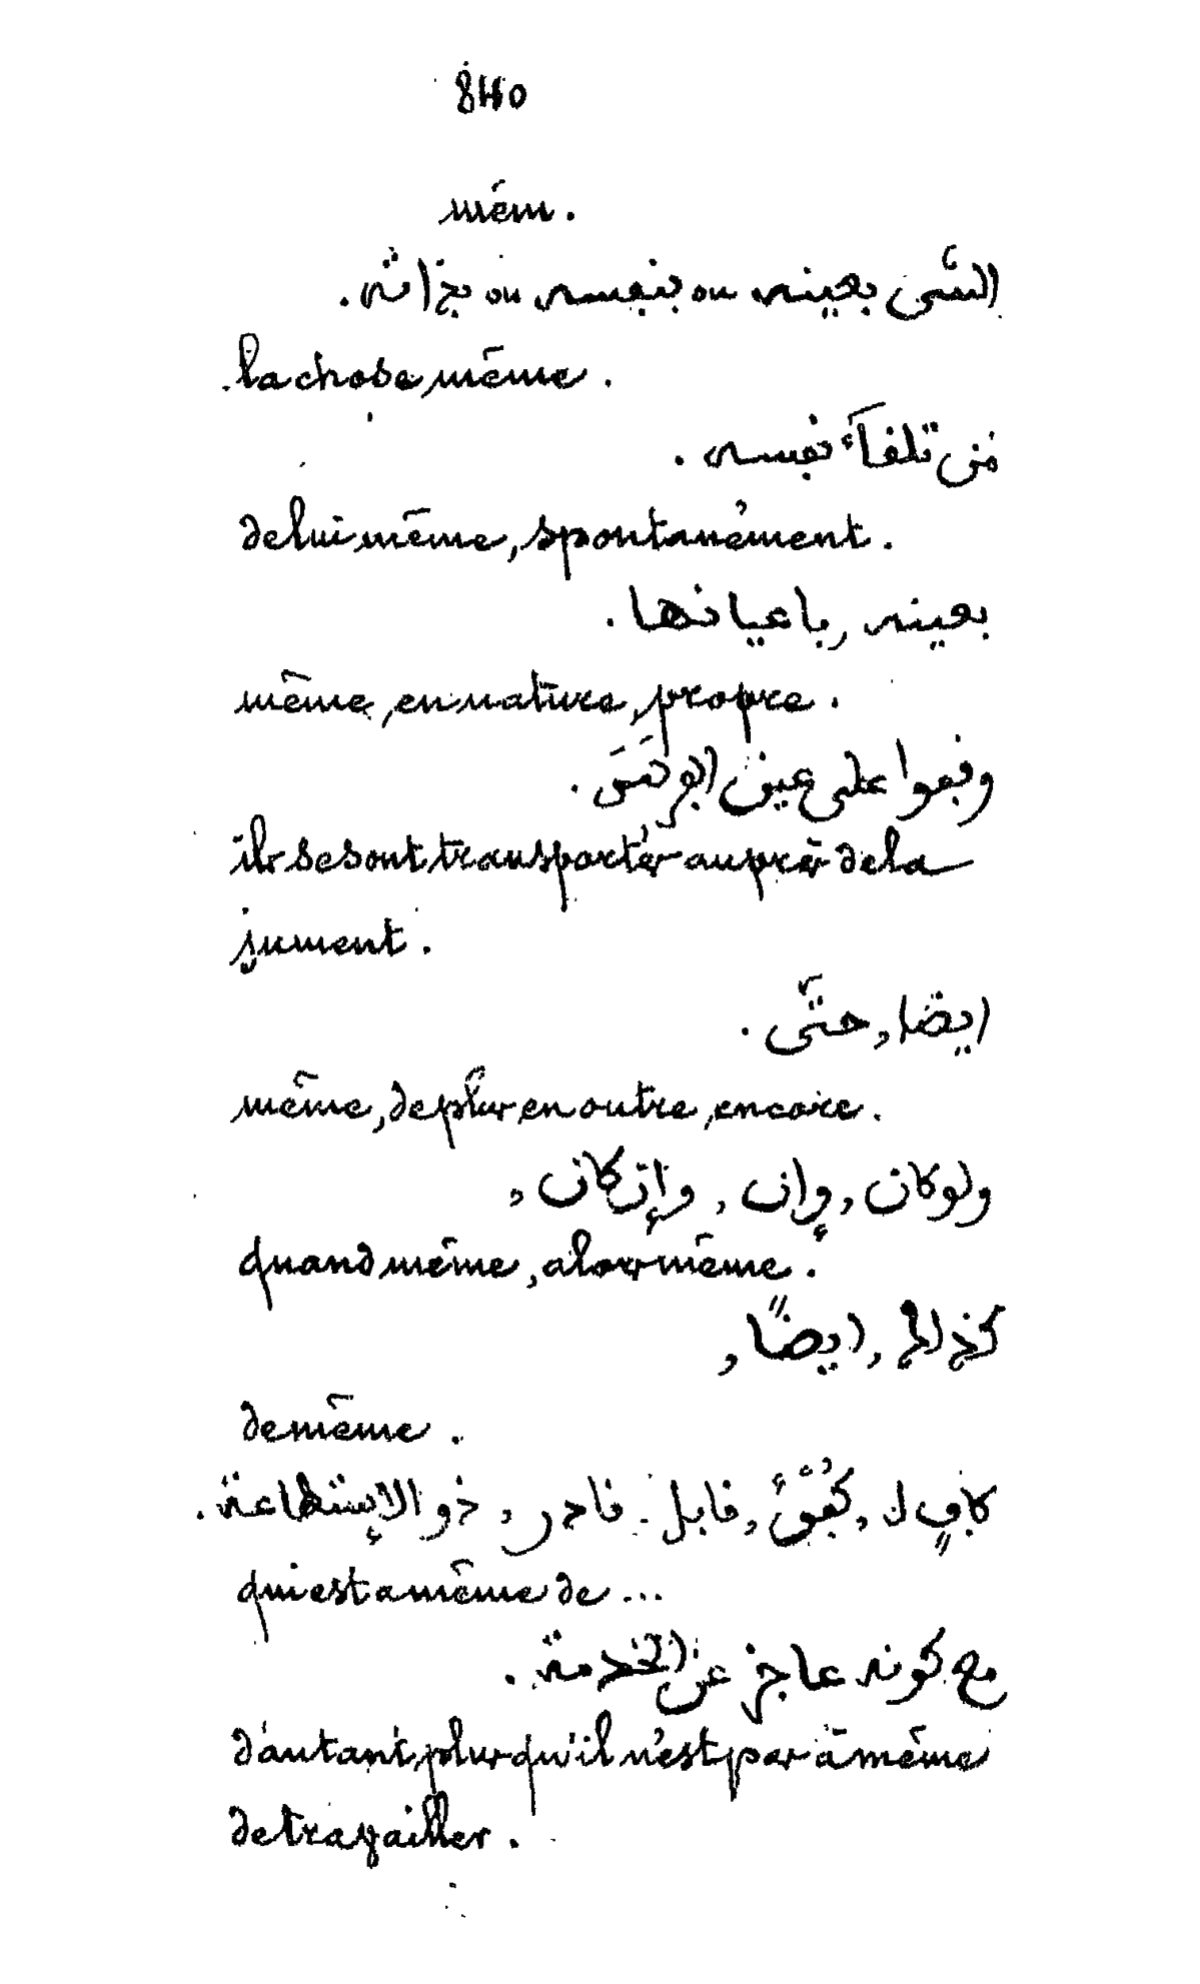 840
mêm.
الشّى بعينه ou بنفسه ou بذاته.
la chose même.
من تلقآء نفسه.
de lui même, spontanément.
بعينه, باعيانها.
même, en nature, propre.
وقعوا على عين الفرس.
ils se sont transportés auprès de la
jument.
ايضا, حتّى.
même, de plus, en outre, encore.
ولو كان, وإن, وإن كان,
quand même, alors même.
كذلك, ايضًا,
de même.
كافٍ ل, كُفُؤ, قابل. قادر, ذو الإستطاعة.
qui est a même de...
مع كونه عاجز عن الخدمة.
d'autant plus qu'il n'est pas à même
de travailler.